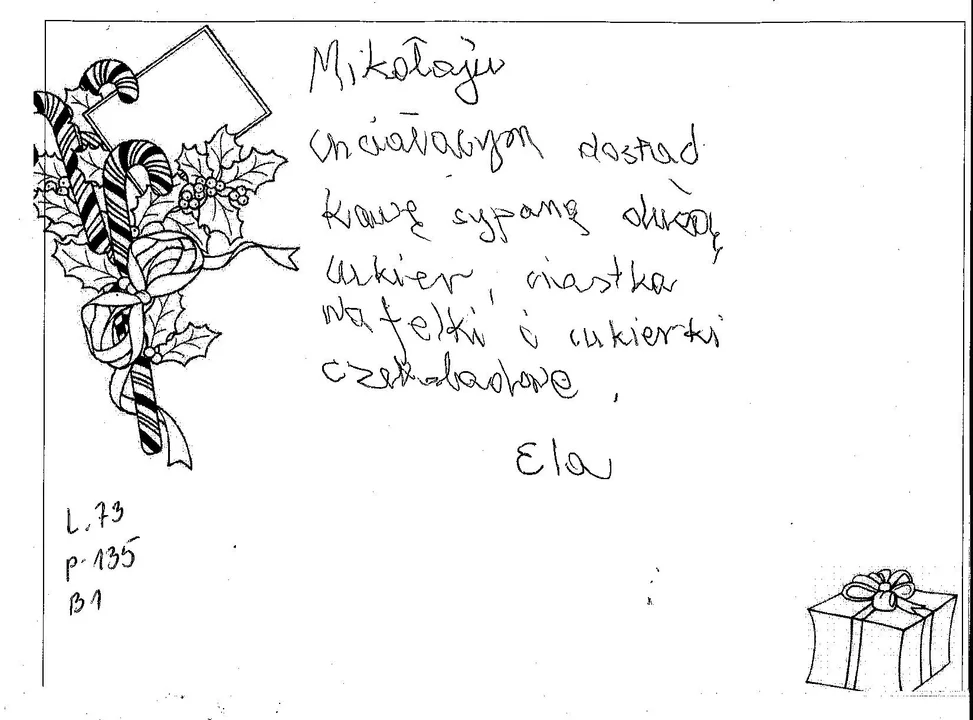 Mikołaju
chciałabym dostad
kawę sypaną dużą,
cukier, ciastka
wafelki i cukierki
czekoladowe.
Ela
L.73
p-135
B1